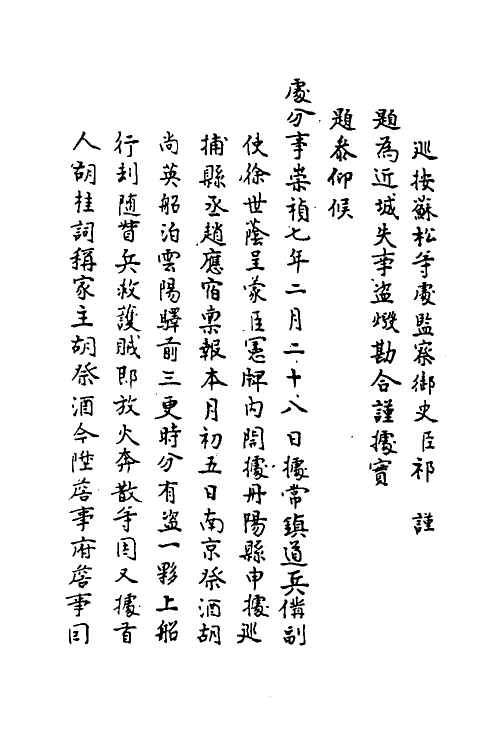 巡按蘇松等處監察御史臣祁　謹
題為近城失事盜燬勘合謹據實
題叅仰候
處分事崇禎七年二月二十八日據常鎮道兵備副
使徐世蔭呈蒙臣憲牌內開據丹陽縣申據巡
捕縣丞趙應宿稟報本月初五日南京祭酒胡
尚英船泊雲陽驛前三更時分有盜一夥上船
行刦隨督兵救護賊即放火奔散等因又據首
人胡桂詞稱家主胡祭酒今陞詹事府詹事因